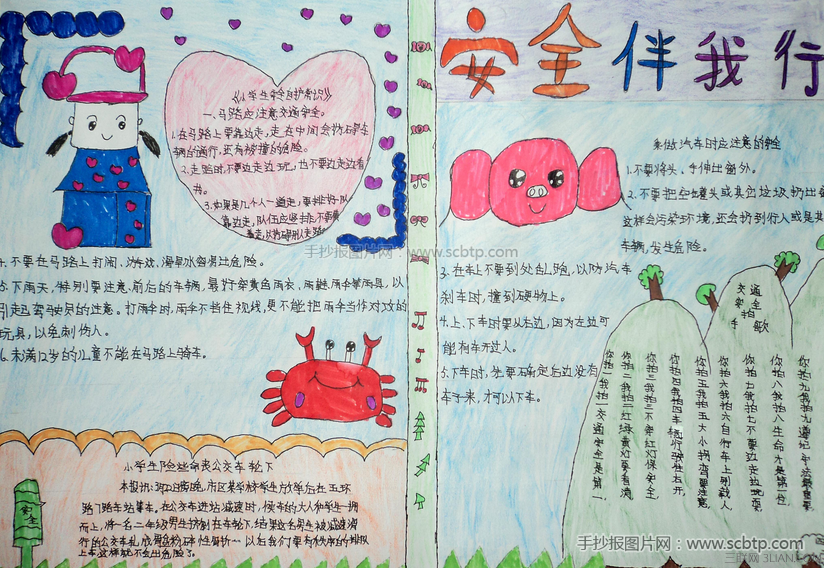 安全伴我行
《小学生安全自护常识》
一、马路应注意交通安全。
1.在马路上要靠边走,走在中间会妨碍车
辆通行,还有被撞的危险。
2.走路时不要边走边玩,也不要边走边看
书。
3.如果是几个人一道走,要排纵队
靠边走,队伍应竖排,不要横
4.不要在马路上打闹、做游戏、滑旱冰容易出危险。
5.下雨天,特别要注意前后的车辆,最好穿黄色雨衣,雨鞋,雨伞等雨具,以
引起驾驶员的注意。打雨伞时,雨伞不挡住视线,更不能把雨伞当作对攻的
玩具,以免刺伤人。
6.未满12岁的儿童不能在马路上骑车。
小学生险些命丧公交车轮下
路门路车站乘车,在公交车进站减速时,候车的大人和学生一拥
而上,将一名二年级男生挤到车轮下,结果这名男生被减速滑
安全
乘做汽车时应注意的安全
1.不要将头、手伸出窗外。
2.不要把空罐头或其它垃圾扔出窗
这样会污染环境,还会扔到行人或是其
车辆,发生危险。
3.在车上不要到处乱跑,以防汽车
刹车时,撞到硬物上。
4.上、下车时要从右边,因为左边可
能有车开过人。
5.下车时,先要确定后边没有
车子来,才可以下车。
交通安全拍手歌
你拍一我拍一交通安全是第一
你拍二我拍二红绿黄灯要看清
你拍三我拍三不等红灯保安全
你拍四我拍四
你拍五我拍五大小拐弯要注意
你拍六我拍六自行车上别载人
你拍七我拍七不要边走边玩耍
你拍八我拍八生命才是第一位
你拍九我拍九遵纪守法最重要
手抄报图片网:www.scbtp.com
手抄报图片网:www.scbtp.com
三联网 3LIAN.COM